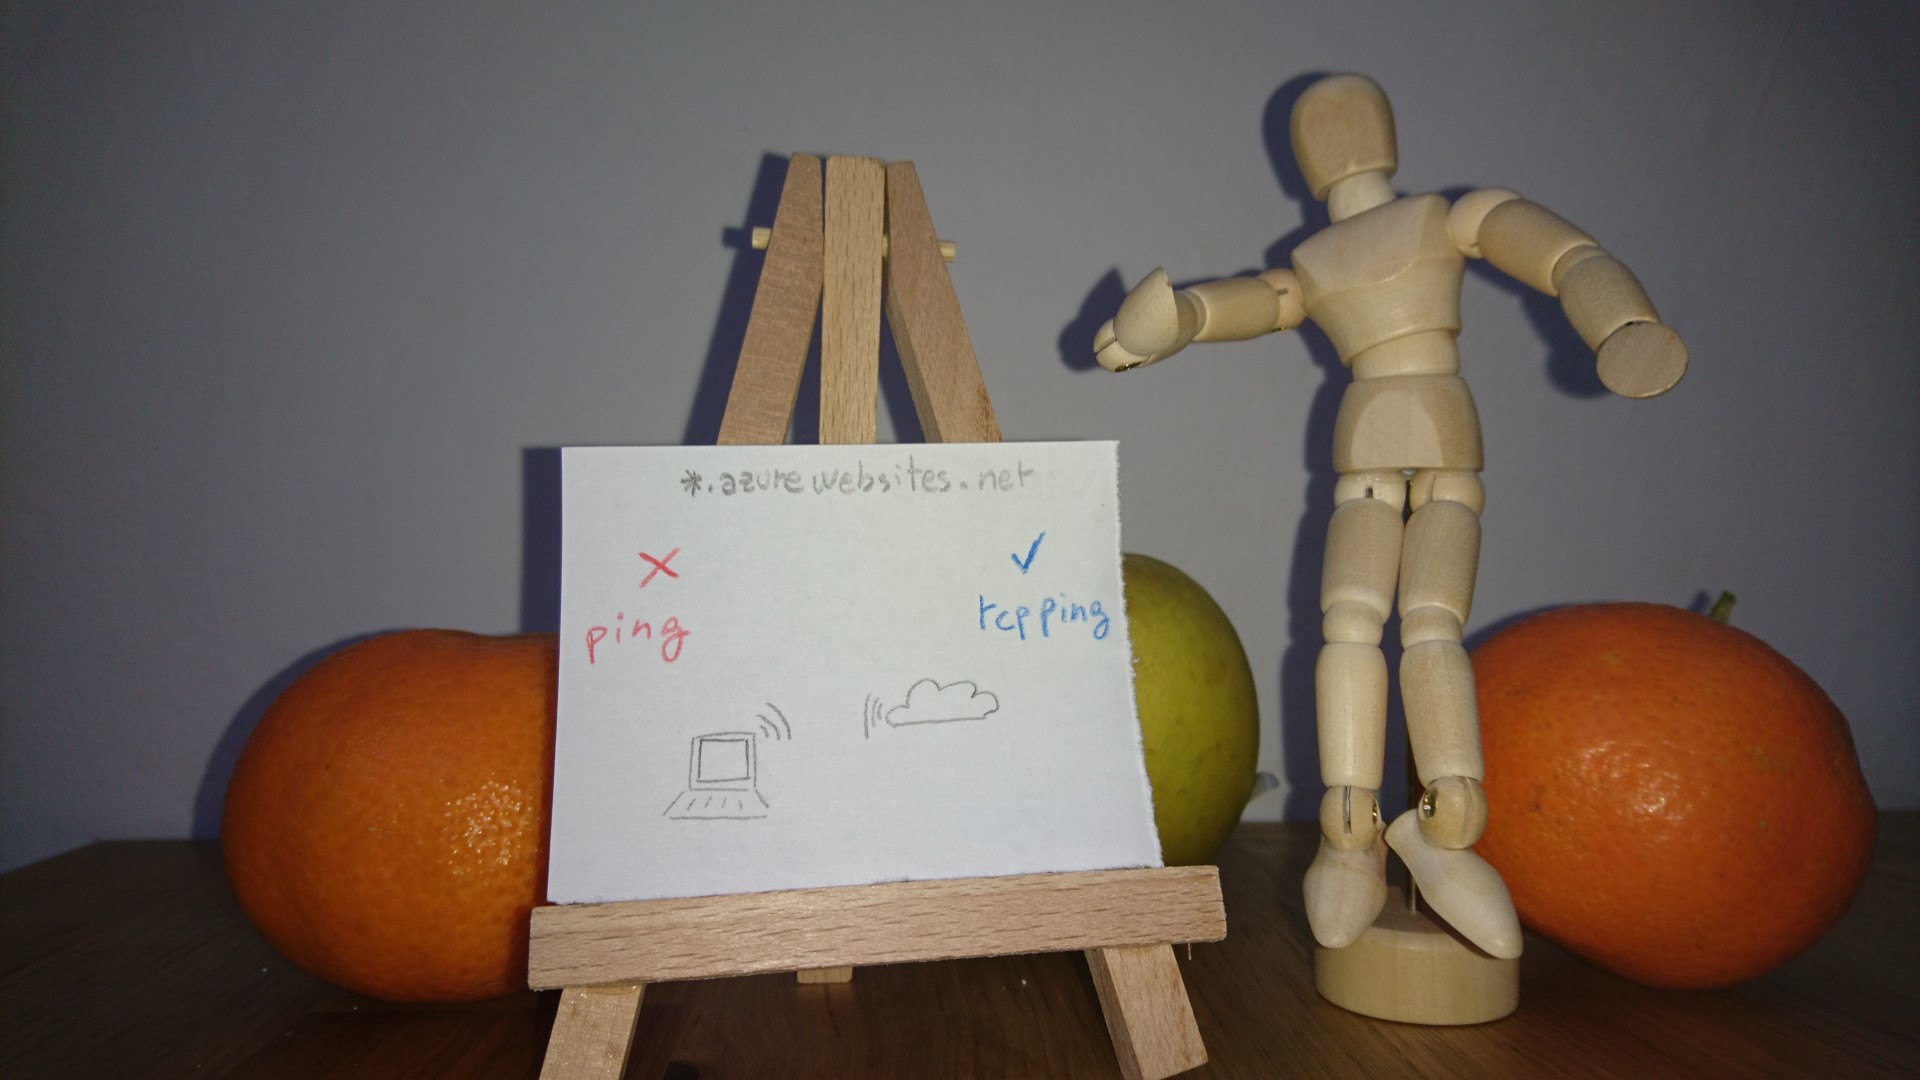 *.azurewebsites.net
ping
tcpping